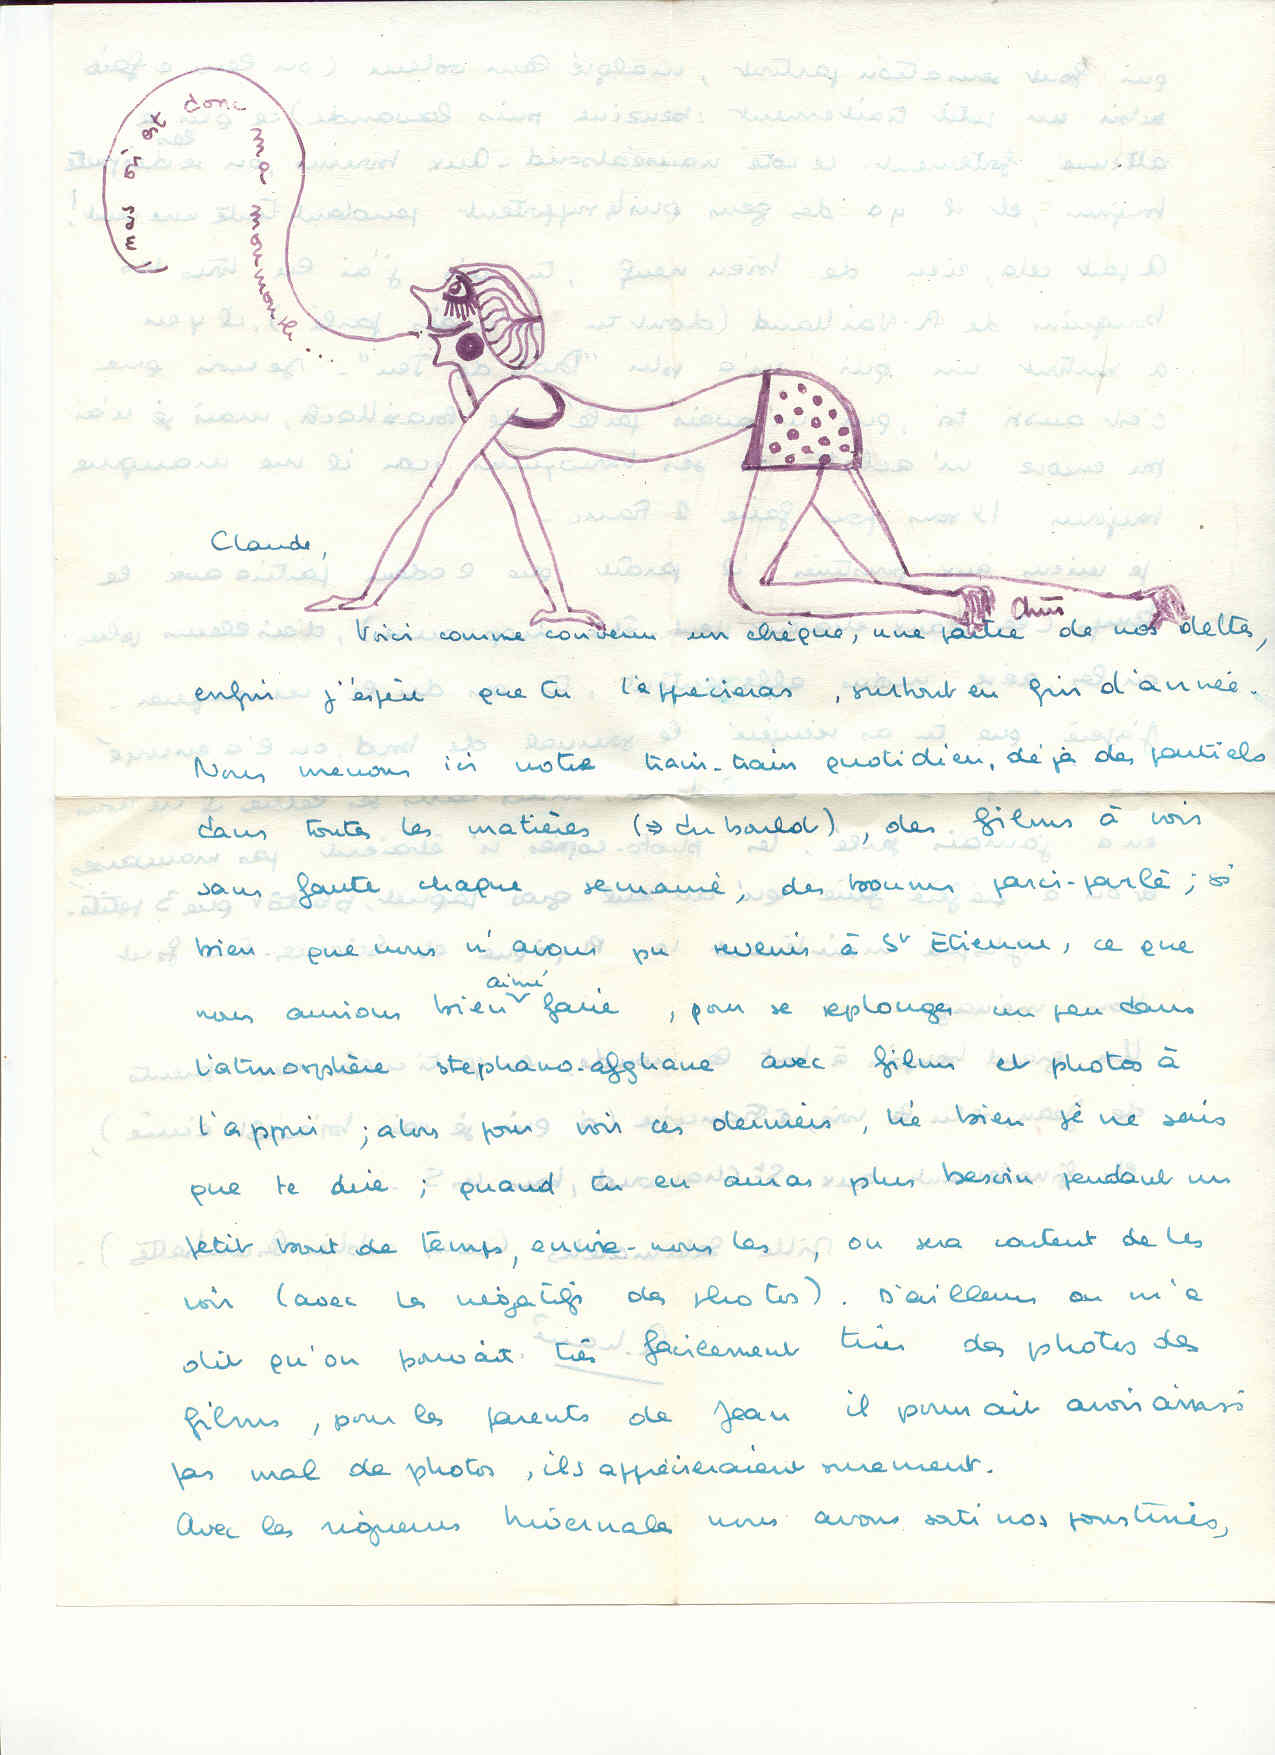 (mais où est donc
ma moumoute...
Claude,
Chris
Voici comme convenu un chèque, une partie de nos dettes,
enfin j'espère que tu l'apprécieras, surtout en fin d'année.
Nous menons ici notre train-train quotidien, déjà des partiels
dans toutes les matières (⇒ du boulot), des films à voir
sans faute chaque semaine, des boums parci-parlà ; si
bien que nous n'avons pu revenir à St Etienne, ce que
nous aurions bien aimé faire, pour se replonger un peu dans
l'atmosphère stephano-afghane avec films et photos à
l'appui ; alors pour voir ces derniers, hé bien, je ne sais
que te dire ; quand tu en auras plus besoin pendant un
petit bout de temps, envoie-nous les, on sera content de les
voir (avec les négatifs des photos). D'ailleurs on m'a
dit qu'on pouvait très facilement tirer des photos des
films, pour les parents de Jean il pourrait avoir ainsi
pas mal de photos, ils apprécieraient surement.
Avec les rigueurs hivernales nous avons sorti nos poustines,